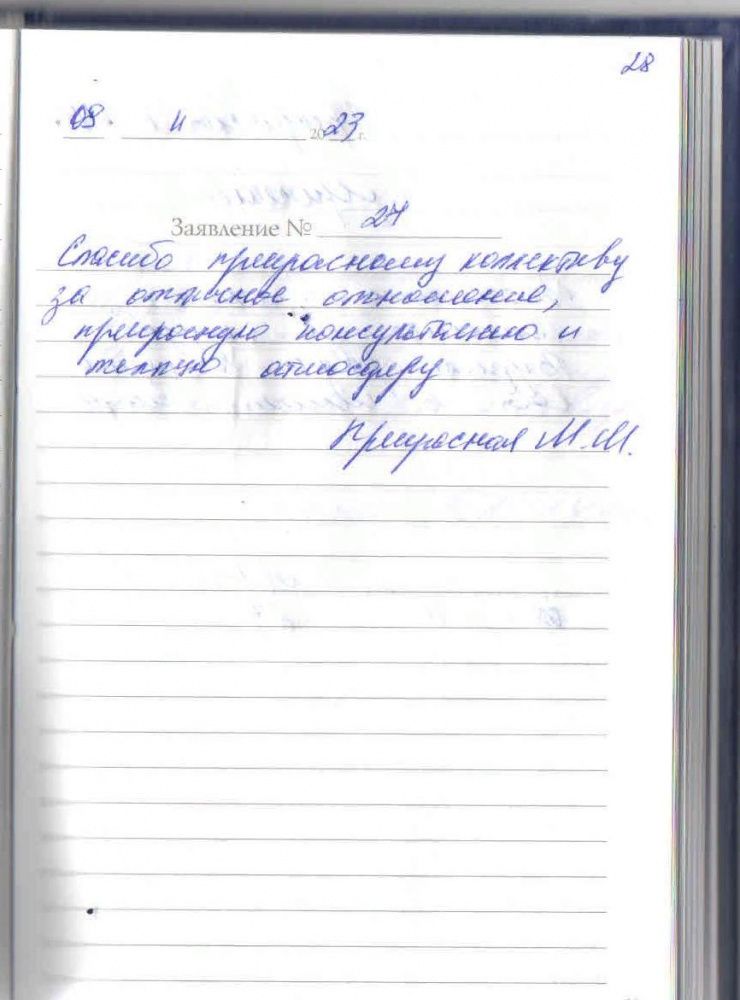 28
"08" 11 2023 г.
Заявление № 27
Спасибо прекрасному коллективу
за отличное отношение,
прекрасную консультацию и
теплую атмосферу
Прекрасная М.М.